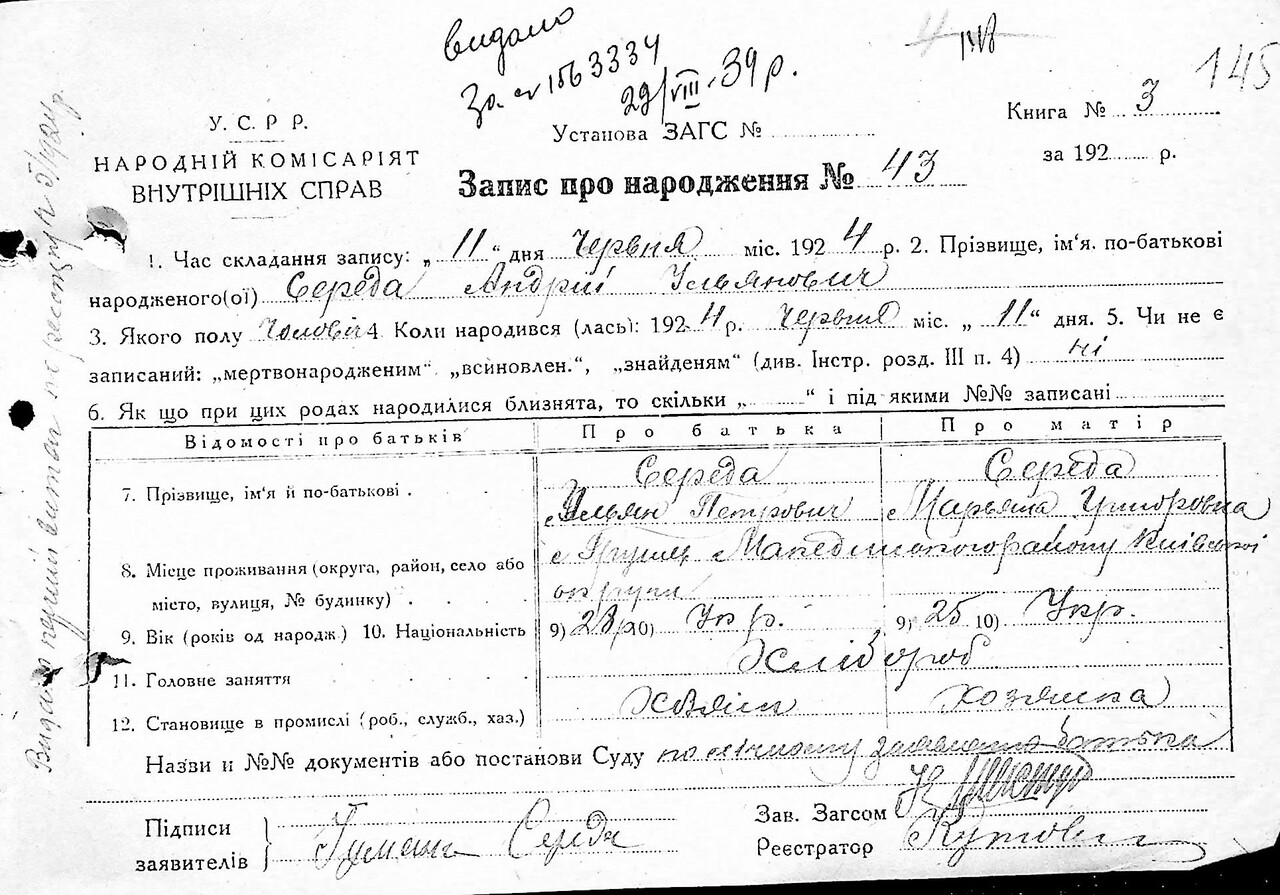 видано
За № 1563334
29/VIII. 39 р.
145
У. С. Р Р.
НАРОДНІЙ КОМІСАРІЯТ
ВНУТРІШНІХ СПРАВ
Установа ЗАГС №
Книга № 3
за 192 р.
Запис про народження № 43
1. Час складання запису: „ 11 “ дня Червня міс. 1924 р. 2. Прізвище, ім‘я. по-батькові
народженого(ої) Середа Андрій Ульянович
3. Якого полу Чоловіч 4. Коли народився (лась): 1924 р. Червня міс. „ 11 “ дня. 5. Чи не є
записаний: „мертвонародженим“ „всиновлен.“, „знайденям“ (див. Інстр. розд. III п. 4) ні
6. Як що при цих родах народилися близнята, то скільки „ “ і під якими №№ записані
Відомості про батьків
Про батька
Про матір
7. Прізвище, ім‘я й по-батькові .
Середа
Ульян Петрович
Середа
Марьяна Григоровна
8. Місце проживання (округа, район, село або
місто, вулиця, № будинку) .
району Київської
округи
9. Вік (років од народж) 10. Національність
9) 28 10) Укр.
9) 25 10) Укр.
11. Головне заняття
Хлібороб
12. Становище в промислі (роб., служб., хаз.)
Хозяин
хозяйка
Назви и №№ документів або постанови Суду по личному батька
Підписи
заявителів
Середа
Зав. Загсом
Реєстратор